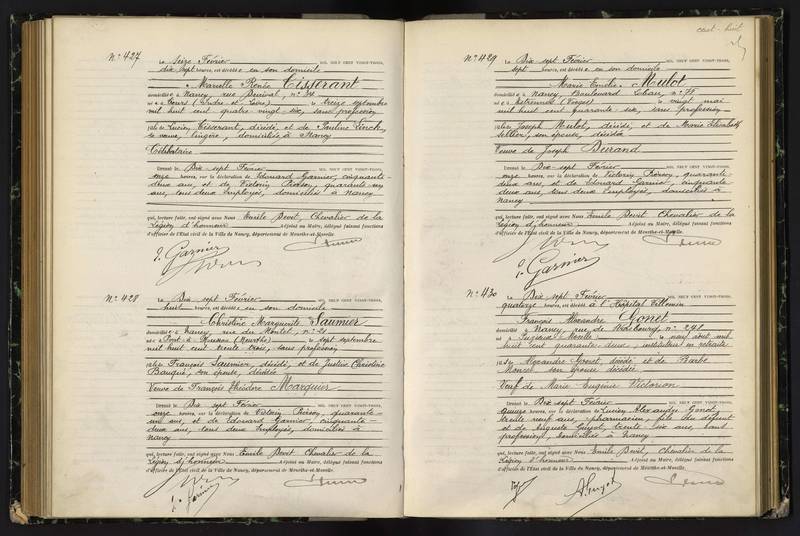 N° 427
Le Seize Février mil neuf cent vingt-trois,
dix sept heures, est décédée en son domicile
Marcelle Renée Tisserant
domiciliée à Nancy, rue n° 34
née à Tours (Indre et Loire) le treize septembre
mil huit cent quatre vingt six, sans profession
fille de Lucien Tisserant, décédé, et de Pauline
sa veuve, lingère, domiciliée à Nancy
Célibataire
Dressé le Dix-sept Février mil neuf cent vingt-trois,
onze heures, sur la déclaration de Edouard Garnier, cinquante
deux ans, et de Victorin Poirson, quarante un
ans, tous deux Employés, domiciliés à Nancy
qui, lecture faite, ont signé avec Nous Emile Devit, Chevalier de la
Légion d'honneur Adjoint au Maire, délégué faisant fonctions
d'officier de l'Etat civil de la Ville de Nancy, département de Meurthe-et-Moselle.
E. Garnier
N° 428
Le Dix sept Février mil neuf cent vingt-trois,
huit heures, est décédée en son domicile
Christine Marguerite Saumier
domiciliée à Nancy rue du Montet, n° 21
née à Pont à Mousson (Meurthe) le sept septembre
mil huit cent trente trois, sans profession
fille de François Saumier, décédé, et de Justine Christine
son épouse, décédée
Veuve de François Théodore Marquier
Dressé le Dix sept Février mil neuf cent vingt-trois,
onze heures, sur la déclaration de Victorin Poirson, quarante-
un ans, et de Edouard Garnier, cinquante-
deux ans, tous deux Employés, domiciliés à
Nancy
qui, lecture faite, ont signé avec Nous Emile Devit Chevalier de la
Légion d'honneur Adjoint au Maire, délégué faisant fonctions
d'officier de l'Etat civil de la Ville de Nancy, département de Meurthe-et-Moselle.
E. Garnier
cent-huit
N° 429
Le Dix sept Février mil neuf cent vingt-trois,
sept heures, est décédée en son domicile
Marie Emilie Mulot
domiciliée à Nancy Boulevard n° 75
née à (Vosges) le vingt mai
mil huit cent quarante six, sans profession
fille de Joseph Mulot, décédé, et de Marie Elisabeth
son épouse, décédée
Veuve de Joseph Durand
Dressé le Dix-sept Février mil neuf cent vingt-trois,
onze heures, sur la déclaration de Victorin Poirson, quarante-
deux ans, et de Edouard Garnier, cinquante-
deux ans, tous deux Employés, domiciliés à
Nancy
qui, lecture faite, ont signé avec Nous Emile Devit Chevalier de la
Légion d'honneur Adjoint au Maire, délégué faisant fonctions
d'officier de l'Etat civil de la Ville de Nancy, département de Meurthe-et-Moselle.
E. Garnier
N° 430
Le Dix sept Février mil neuf cent vingt-trois,
quatorze heures, est décédé à l'Hôpital Villemin
François Alexandre Gonet
domicilié à Nancy, rue de n° 248
né à Moselle le neuf août mil
huit cent quarante deux, instituteur en retraite
fils de Alexandre Gonet, décédé et de Barbe
son épouse décédée
Veuf de Marie Eugénie Victorion
Dressé le Dix sept Février mil neuf cent vingt-trois,
quinze heures, sur la déclaration de Lucien Alexandre Gonet,
trente neuf ans, pharmacien, fils du défunt
et de Auguste Guyot, trente six ans, sans
profession, domiciliés à Nancy
qui, lecture faite, ont signé avec Nous Emile Devit, Chevalier de la
Légion d'honneur Adjoint au Maire, délégué faisant fonctions
d'officier de l'Etat civil de la Ville de Nancy, département de Meurthe-et-Moselle.
A. Guyot